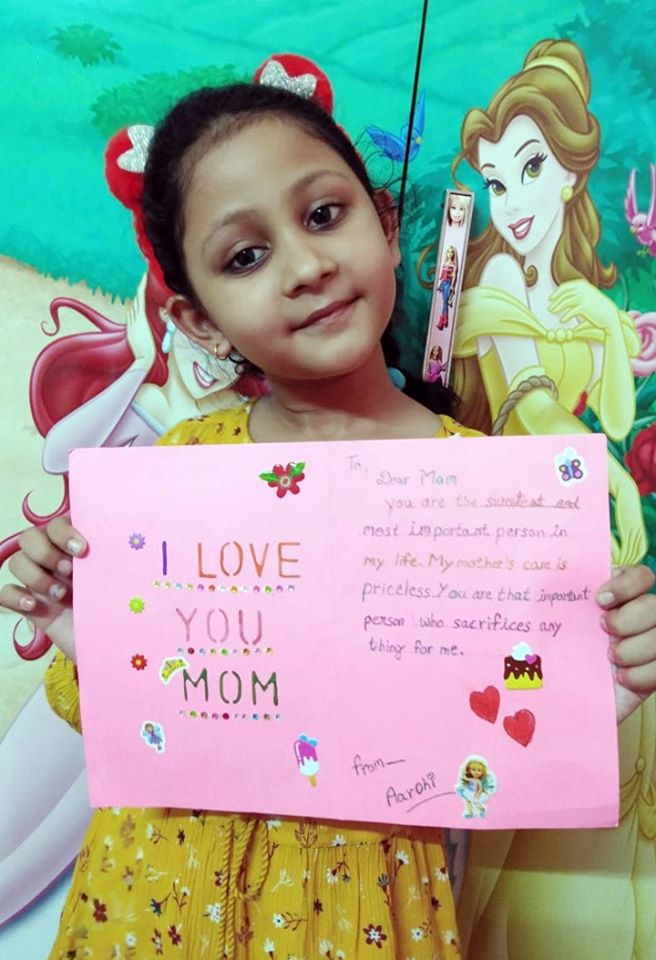 I LOVE
YOU
MOM
To,
Dear Mom
you are the sweetest and
most important person in
my life. My mother's care is
priceless. You are that important
person who sacrifices any
thing for me.
from—
Aarohi